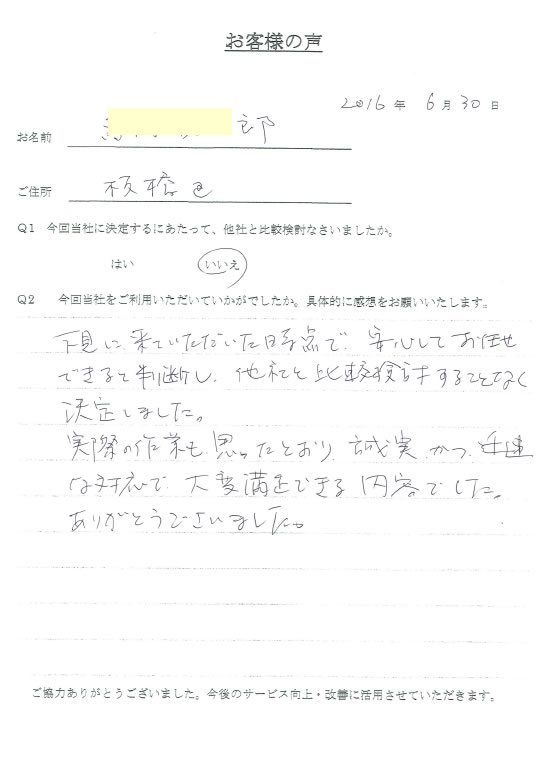 お客様の声
2016年 6月30日
お名前 郎
ご住所 板橋区
Q1 今回当社に決定するにあたって、他社と比較検討なさいましたか。
はい いいえ
Q2 今回当社をご利用いただいていかがでしたか。具体的に感想をお願いいたします。
下見に来ていただいた時点で、安心してお任せ
できると判断し、他社と比較検討することなく
決定しました。
実際の作業も思ったとおり、誠実かつ迅速
な対応で、大変満足できる内容でした。
ありがとうございました。
ご協力ありがとうございました。今後のサービス向上・改善に活用させていただきます。